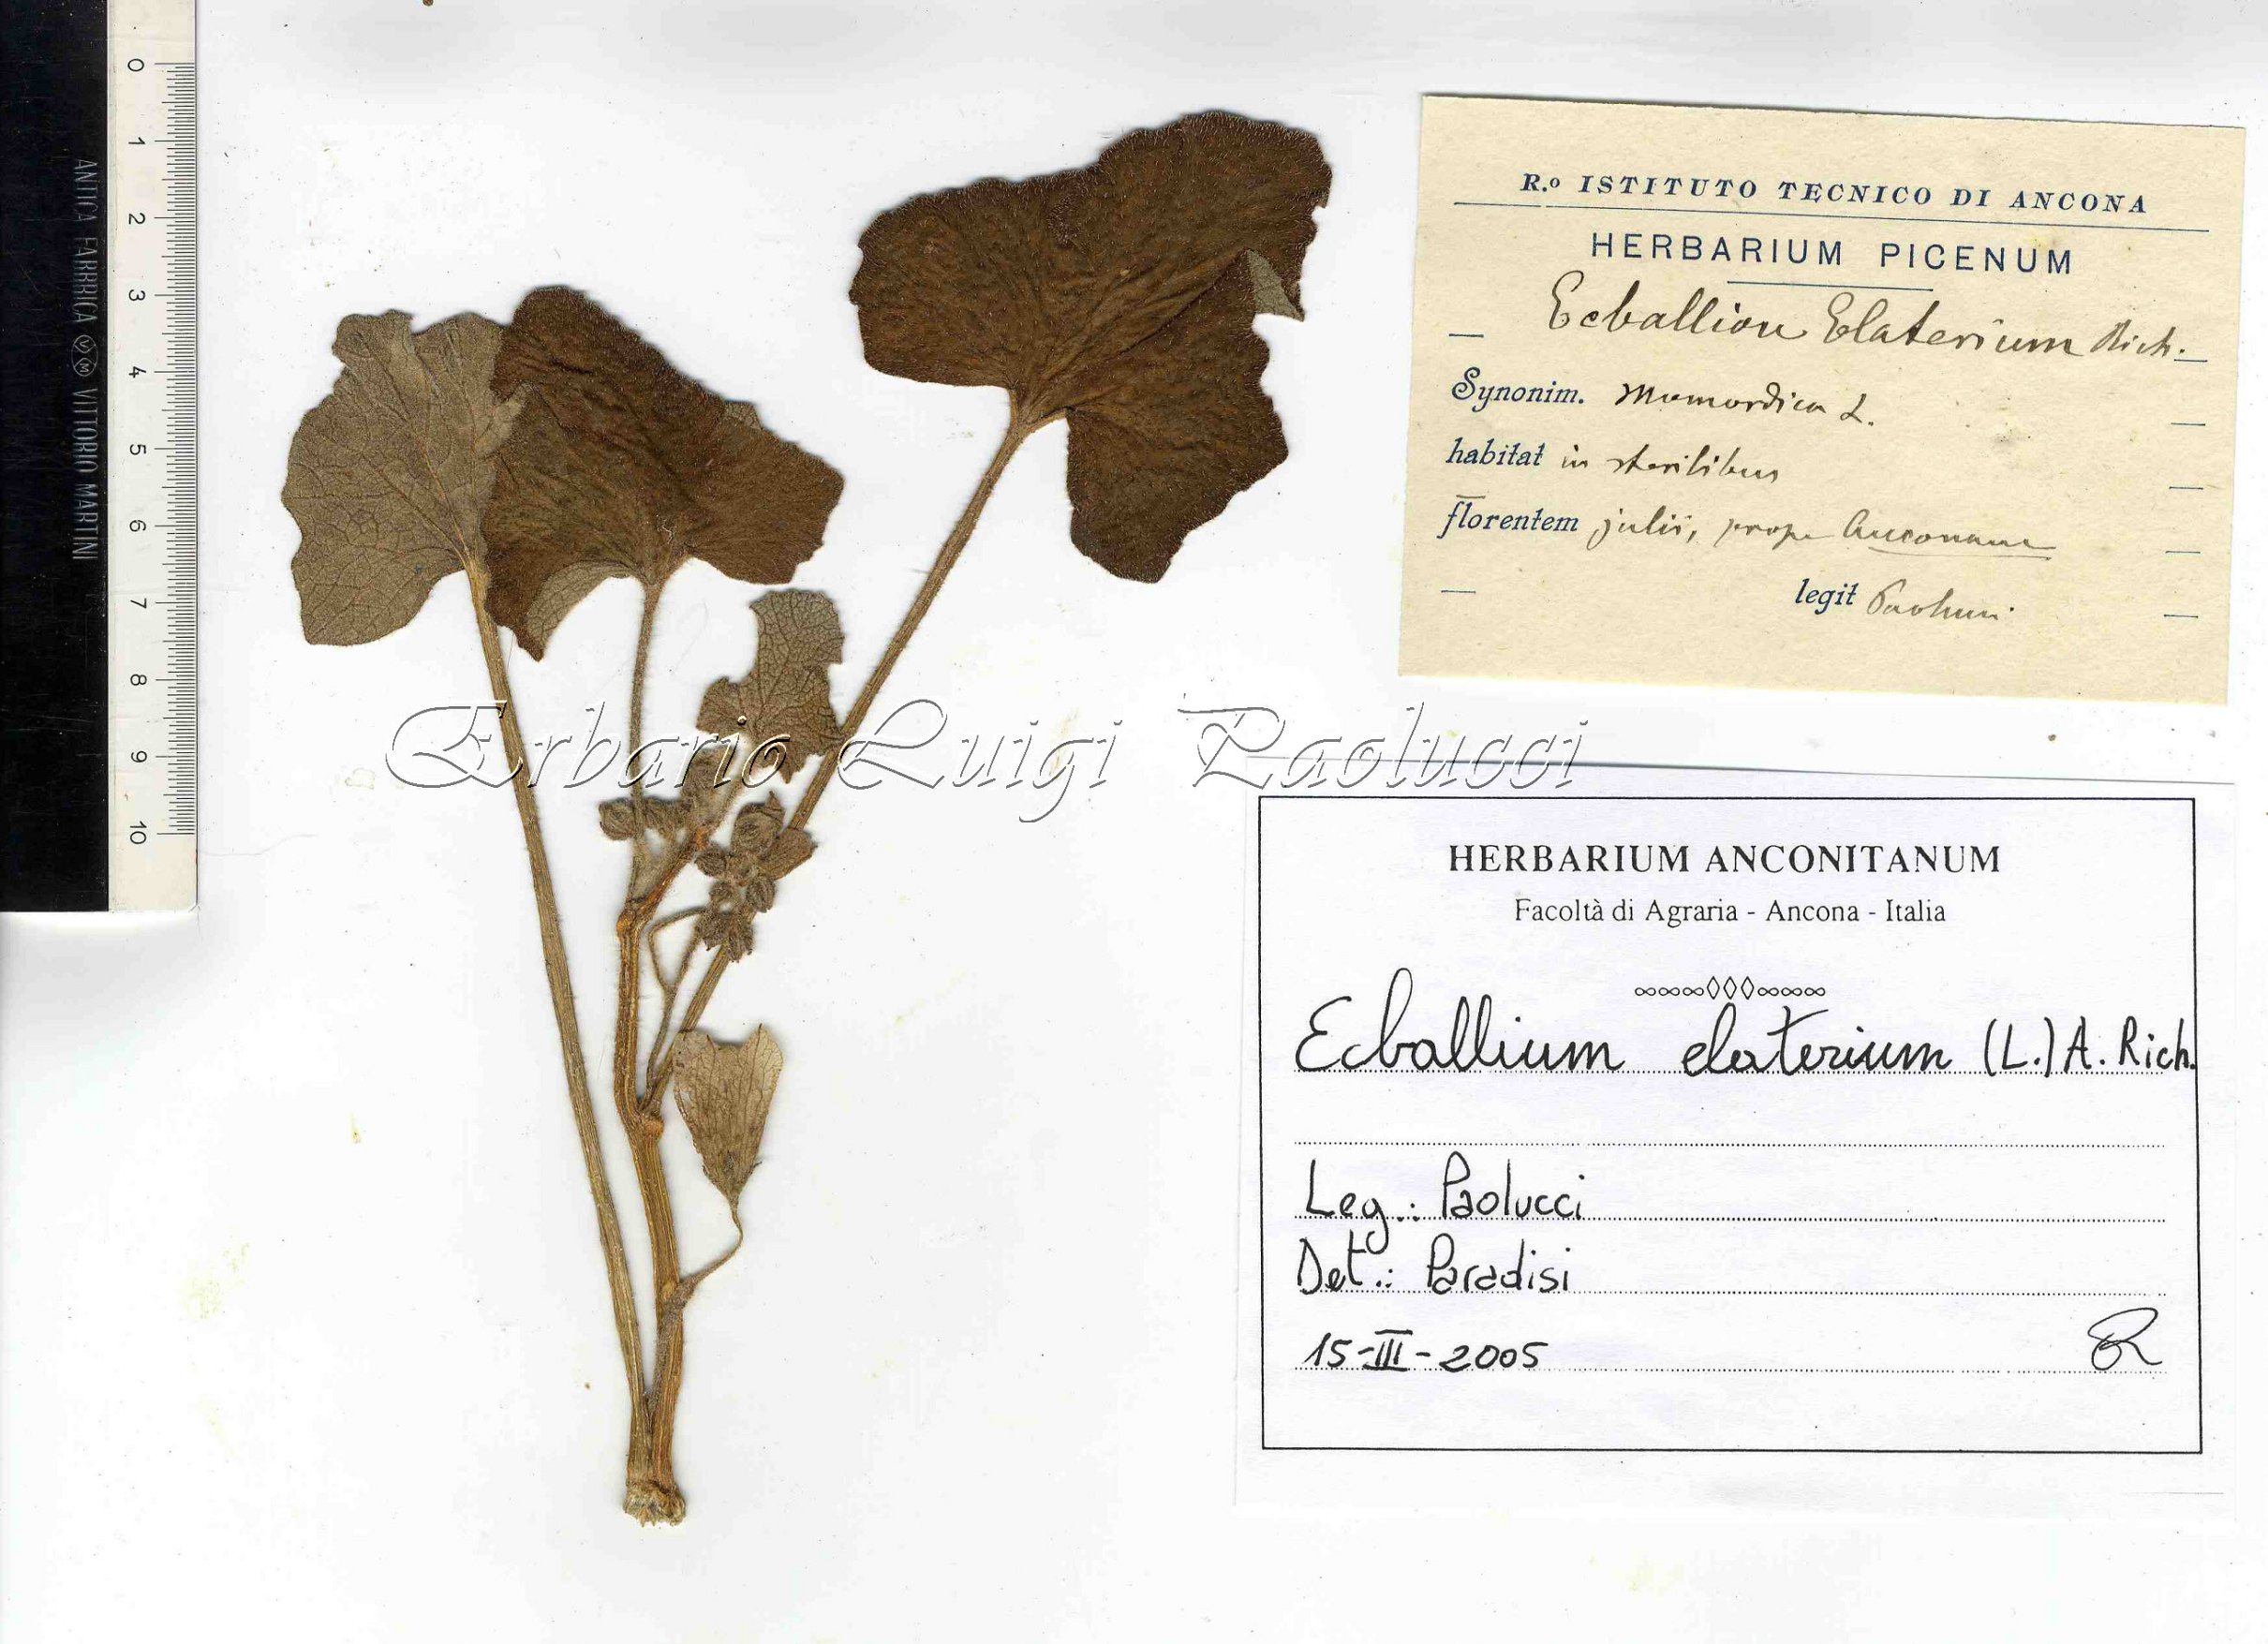 0
1
2
3
4
5
6
7
8
9
10
ANTICA FABBRICA VM VITTORIO MARTINI
R.o ISTITUTO TECNICO DI ANCONA
HERBARIUM PICENUM
Ecballion Elaterium Rich.
Synonim. Momordica L.
habitat in sterilibus
florentem julii, prope Anconam
legit Paolucci
Erbario Luigi Paolucci
HERBARIUM ANCONITANUM
Facoltà di Agraria - Ancona - Italia
Ecballium elaterium (L.) A. Rich.
Leg.: Paolucci
Det.: Paradisi
15-III-2005